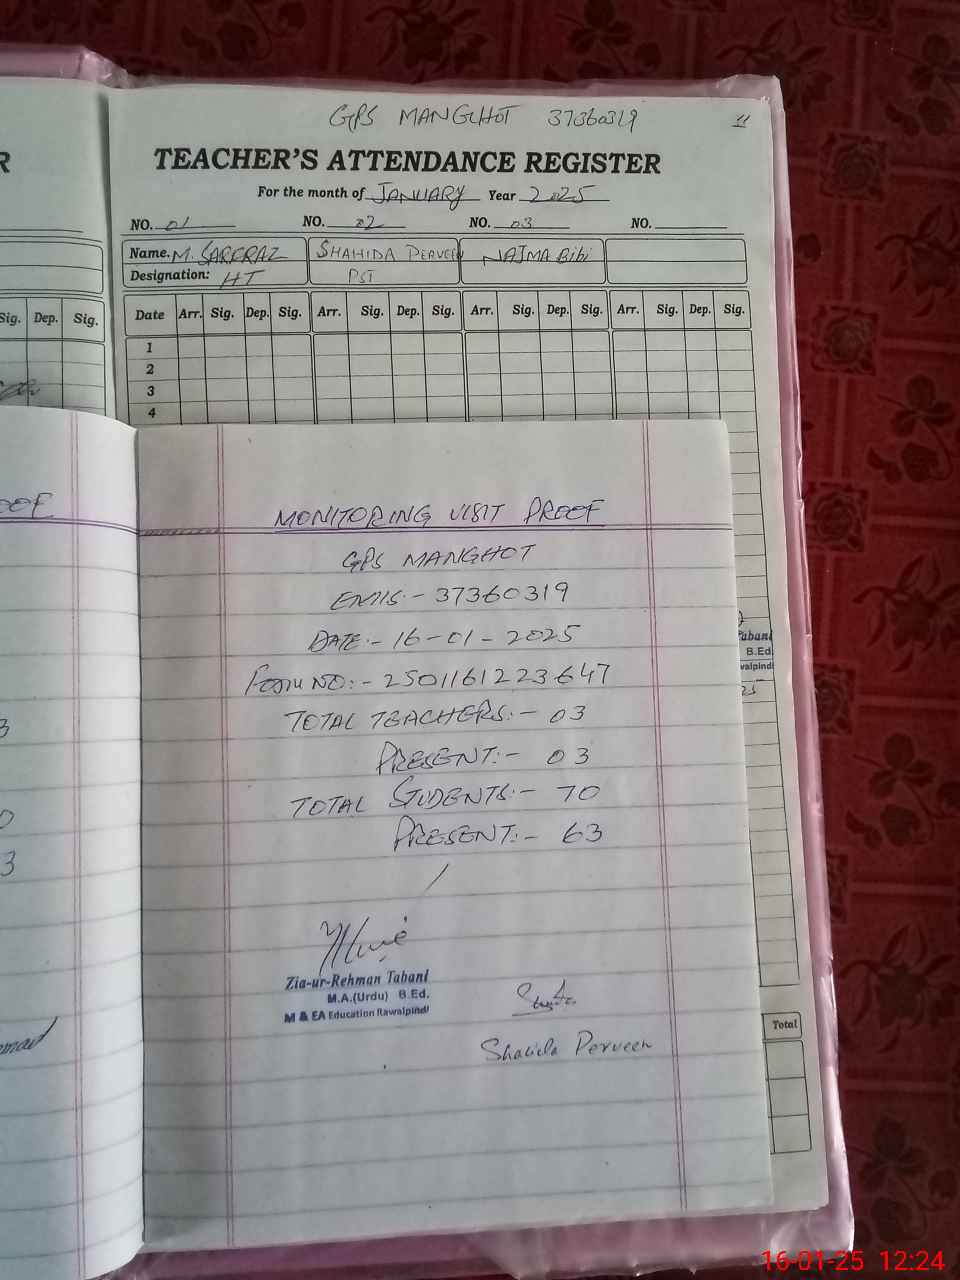 GPS MANGHOT 37360319 11
TEACHER'S ATTENDANCE REGISTER
For the month of JANUARY Year 2025
NO. 01 NO. 02 NO. 03 NO.
Name. M. SARFRAZ SHAHIDA PERVEEN NAJMA BiBi
Designation: HT PST
Date Arr. Sig. Dep. Sig. Arr. Sig. Dep. Sig. Arr. Sig. Dep. Sig. Arr. Sig. Dep. Sig.
1
2
3
4
R
Sig. Dep. Sig.
OOF
MONITORING VISIT PROOF
GPS MANGHOT
EMIS:- 37360319
DATE:- 16-01-2025
Form NO:- 2501161223647
TOTAL TEACHERS:- 03
PRESENT:- 03
TOTAL STUDENTS:- 70
PRESENT:- 63
Zia-ur-Rehman Tabani
M.A.(Urdu) B.Ed.
M & EA Education Rawalpindi
Shahida Perveen
Tabani
B.Ed.
walpindi
25
Total
3
0
3
16-01-25 12:24